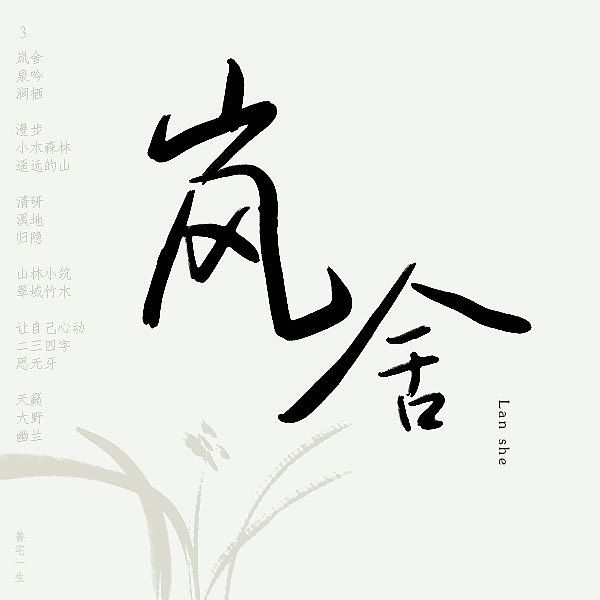 3
岚舍
泉吟
涧栖
漫步
小木森林
遥远的山
清研
溪地
归隐
山林小筑
翠域竹水
让自己心动
二三四字
思无牙
天籁
大野
幽兰
善宅一生
岚舍
Lan she